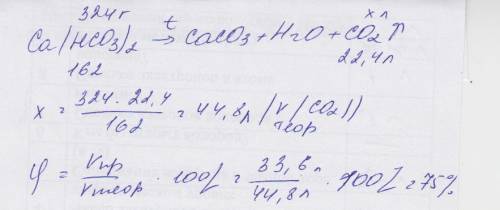 324г х л
Ca(HCO3)2 t→ CaCO3 + H2O + CO2↑
162 22,4л
х = 324 · 22,4 / 162 = 44,8л (V теор (CO2))
φ = Vпр / Vтеор · 100% = 33,6 л / 44,8 л · 100% = 75%